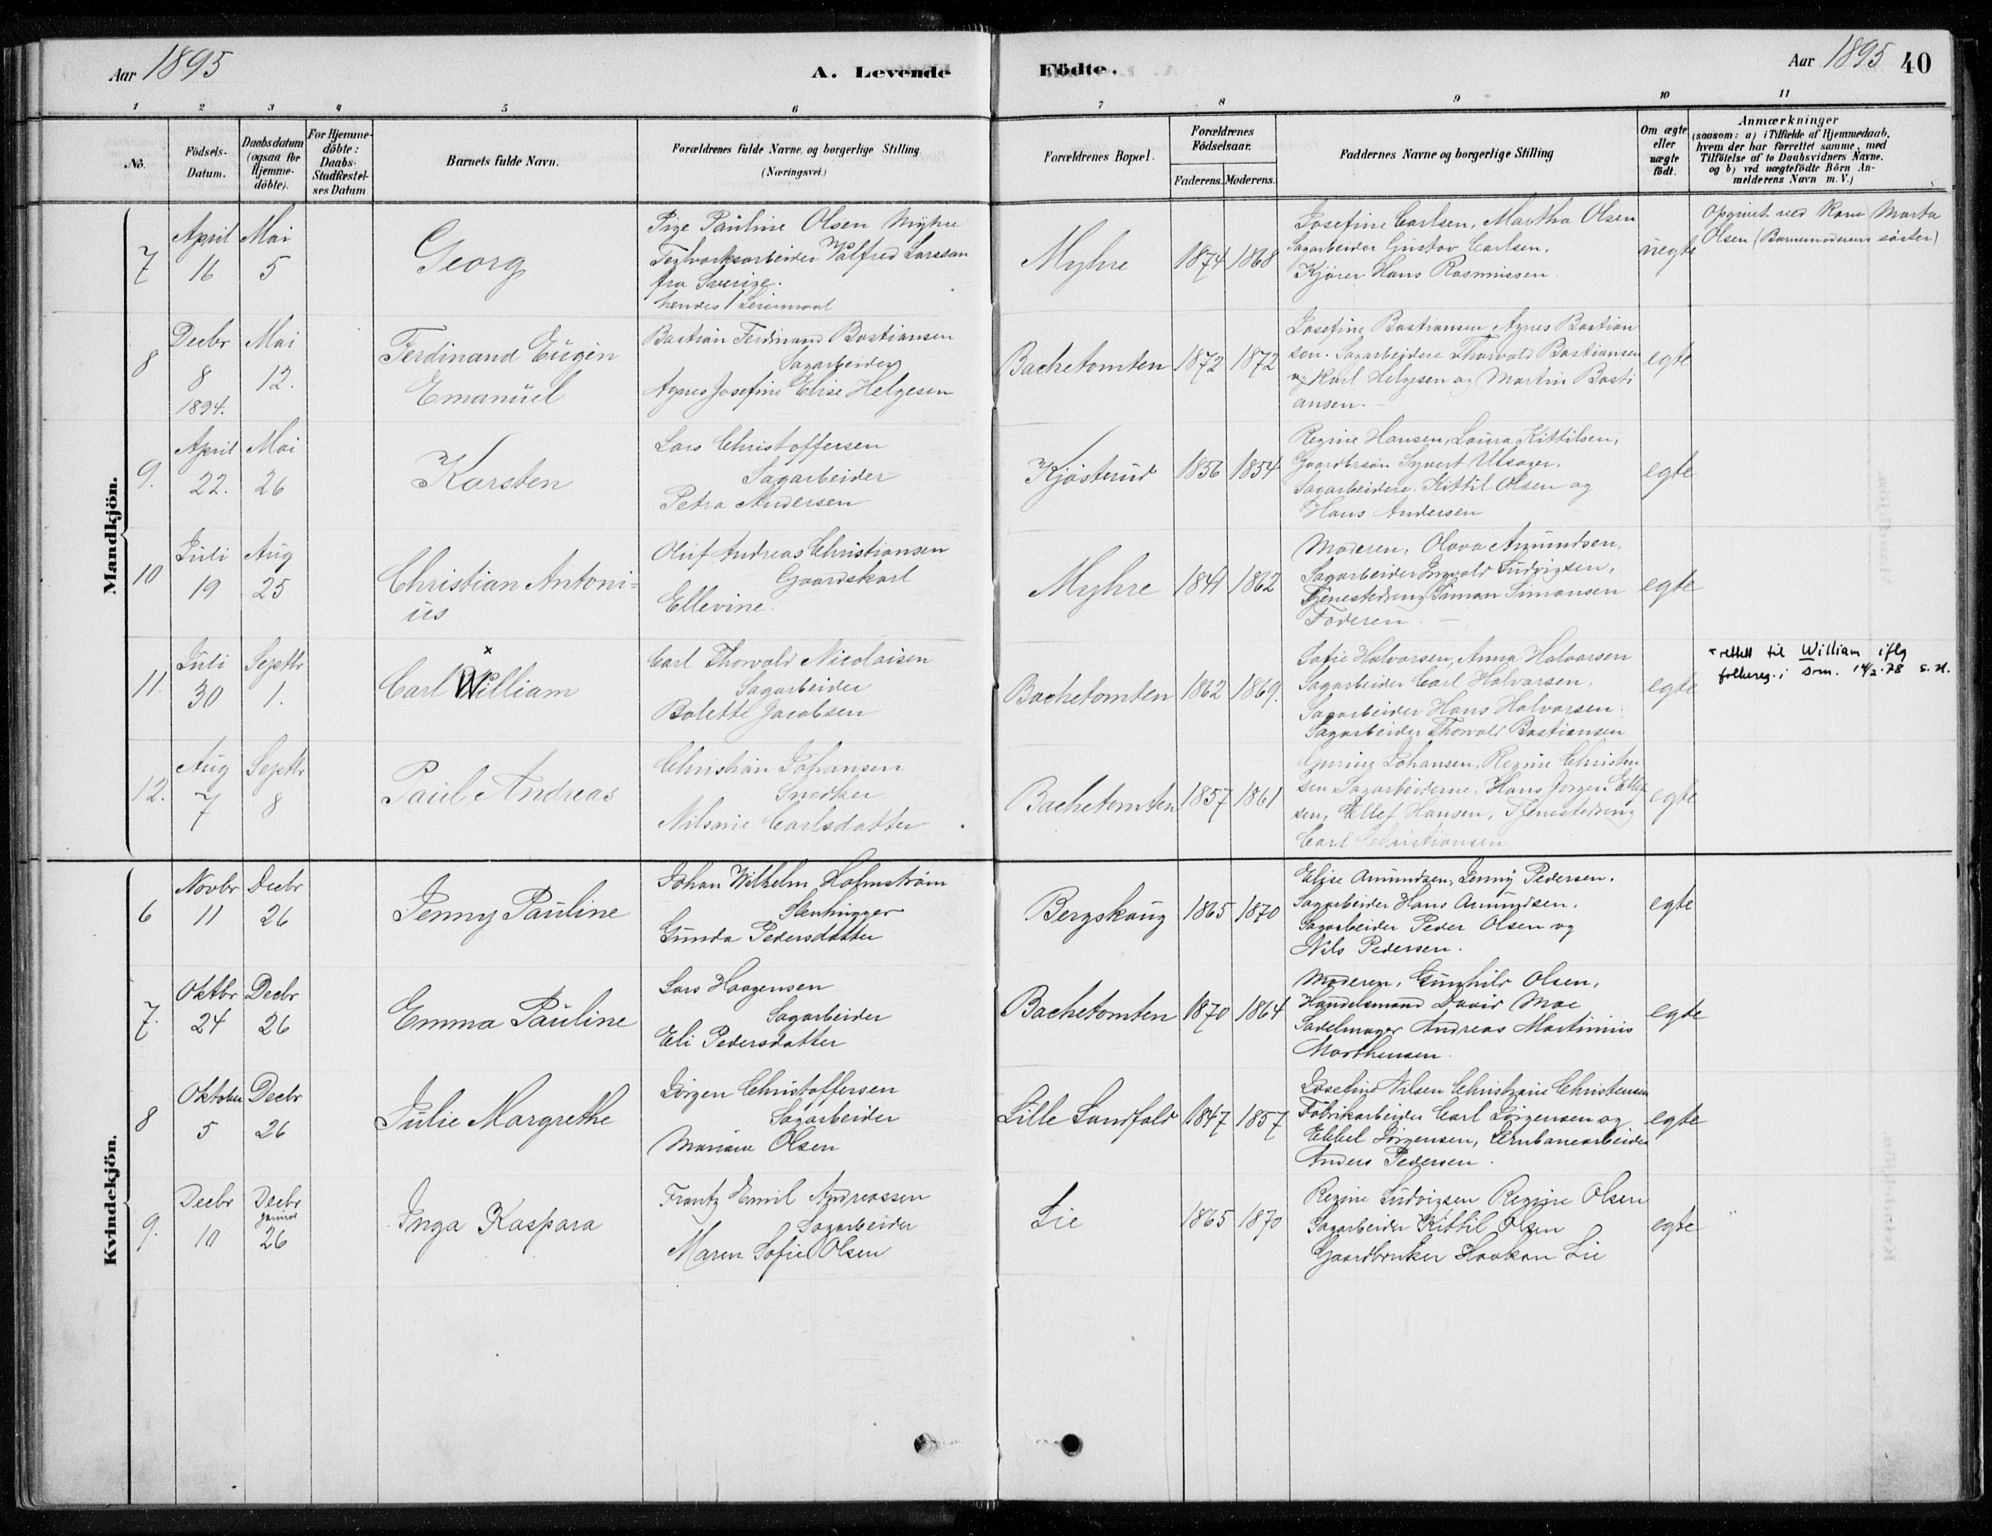 Aar 1895
A. Levende
Födte.
Aar 1895 40
1 2 3 4 5 6 7 8 9 10 11
No.
Födsels-
Datum.
Daabsdatum
(ogsaa for
Hjemme-
döbte).
For Hjemme-
döbte:
Daabs-
Stadfæstel-
ses Datum
Barnets fulde Navn.
Forældrenes fulde Navne og borgerlige Stilling
(Næringsvei.)
Forældrenes Bopæl.
Forældrenes
Födselsaar.
Faderens. Moderens.
Faddernes Navne og borgerlige Stilling
Om ægte
eller
uægte
födt.
Anmærkninger
(saasom: a) i Tilfælde af Hjemmedaab,
hvem der har forrettet samme, med
Tilföielse af to Daabsvidners Navne,
og b) ved uægtefödte Börn An-
melderens Navn m. V.)
Mandkjön.
7
April
16
Mai
5
Georg
Pige Pauline Olsen Myhre
Teglværksarbeider Valfred Larsson
fra Sverige.
hendes 1 Leiermaal
Myhre
1874 1868
Josefine Carlsen, Martha Olsen
Sagarbeider Gustav Carlsen,
Kjører Hans Rasmussen
uegte
Opgivet ved Kone Marta
Olsen (Barnemoderens søster)
8
Decbr
8
1894.
Mai
12.
Ferdinand Eugen
Emanuel
Bastian Ferdinand Bastiansen
Sagarbeider
Agnes Josefine Elise Helgesen
Bachetomten
1872 1872
Josefine Bastiansen Agnes Bastian
sen. Sagarbejdere Thorvald Bastiansen
og Karl Helgesen og Martin Basti
ansen.
egte
9.
April
22.
Mai
26
Karsten
Lars Christoffersen
Sagarbeider
Petra Andersen
Kjøsterud
1856 1854
Regine Hansen, Laura Kittilsen,
Gaardbrsøn Syvert Ulsager.
Sagarbeidere Kittil Olsen og
Hans Andersen
egte
10
Juli
19
Aug
25
Christian Antoni-
us
Oluf Andreas Christiansen
Gaardskarl
Ellevine.
Myhre
1841 1862
Moderen, Olava Amundsen,
Sagarbeider Ingvald Ludvigsen,
Tjenestedreng Simon Simonsen
Faderen.
egte
11.
Juli
30
Septbr
1.
x
Carl William
Carl Thorvald Nicolaisen
Sagarbeider
Bolette Jacobsen
Bachetomten
1862 1869.
Sofie Halvorsen, Anna Halvorsen
Sagarbeider Carl Halvorsen.
Sagarbeider Hans Halvorsen.
Sagarbeider Thorvald Bastiansen
egte
x rettet til William iflg
folkereg. i Drm. 14/2-78 S.H.
12.
Aug
7
Septbr
8
Paul Andreas
Christian Johansen
Snedker
Nilsine Carlsdatter
Bachetomten
1857 1861
Guring Johansen, Regine Christen
sen Sagarbeiderne, Hans Jørgen Ellef
sen, Ellef Hansen, Tjenestedreng
Carl Christiansen
egte
Kvindekjön.
6
Novbr
11
Decbr
26
Jenny Pauline
Johan Wilhelm Holmstrøm
Stenhugger
Gunda Pedersdatter
Bergskaug
1865 1870
Elise Amundsen, Jenny Pedersen.
Sagarbeider Hans Amundsen.
Sagarbeider Peder Olsen og
Nils Pedersen.
egte
7.
Oktbr
24
Decbr
26
Emma Pauline
Lars Haagensen
Sagarbeider
Eli Pedersdatter
Bachetomten
1870 1864
Moderen, Gunhild Olsen,
Handelsmand David Moe
Sadelmager Andreas Martinius
Marthensen.
egte
8
Oktober
5
Decbr
26
Julie Margrethe
Jørgen Christoffersen
Sagarbeider
Mariane Olsen
Lille Sandfald
1847 1857
Josefine Nilsen Christiane Christensen
Fabrikarbeider Carl Jørgensen og
Ebbel Jørgensen, Jernbanearbeider
Anders Pedersen.
egte
9.
Decbr
10
Decbr
Januar
26
Inga Kaspara
Frantz Emil Andreassen
Sagarbeider
Maren Sofie Olsen
Lie
1865 1870
Regine Ludvigsen Regine Olsen
Sagarbeider Kittil Olsen
Gaardbruker Haakon Lie
egte